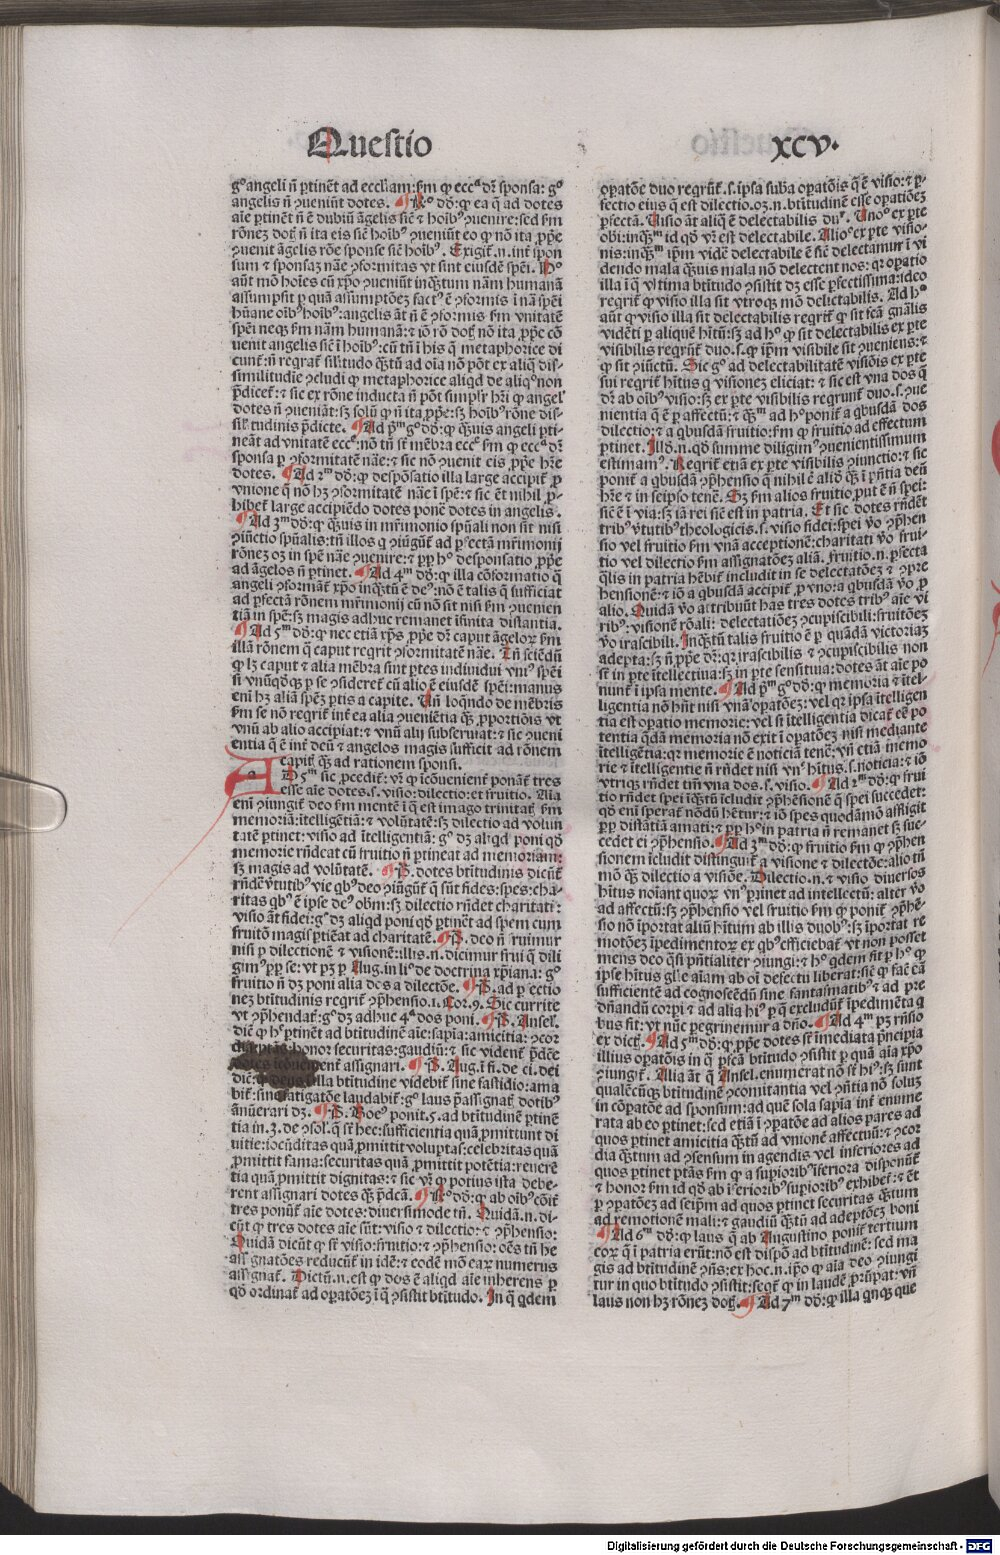 Questio
xcv.
gͦ angeli n̄ ꝑtinēt ad eccl̄iam: ẜm ꝙ eccͣ dr̄ sponsa: gͦ
angelis n̄ ꝯueniūt dotes. Rͦ dd̄ꝫ ꝙ ea q̄ ad dotes
aīe ꝑtinēt n̄ ē dubiū āgelis sic̄ ⁊ hoīb⁹ ꝯuenire: sed ẜm
rōnez dot̄ n̄ ita eis sic̄ hoīb⁹ ꝯueniūt eo ꝙ nō ita ꝓpe
ꝯuenit āgelis rōe sponse sic̄ hoīb⁹. Exigit̄.n. int̄ spon
sum ⁊ sponsaz nāe ꝯformitas vt sint eiusdē spēi. Hͦ
aūt mō hoīes cū xp̄o ꝯueniūt inqꝫtum nām humanā
assumpsit ꝑ quā assumptōez fact⁹ ē ꝯformis ī nā spēi
hūane oīb⁹ hoīb⁹: angelis āt n̄ ē ꝯformis ẜm vnitatē
spēi neqꝫ ẜm nām humanā: ⁊ iō rō dot̄ nō ita ꝓpe cō
uenit angelis sic̄ ī hoīb⁹: cū tn̄ ī his q̄ metaphorice di
cunt̄: n̄ regrat̄ sil̄itudo qꝫtū ad oīa nō pōt ex aliq̄ dis
similitudīe ꝯcludi ꝙ metaphorice aliqd de aliqͦ non
p̄dicet̄: ⁊ sic ex rōne inducta n̄ pōt simplr̄ hr̄i ꝙ angel̄
dotes n̄ ꝯueniāt: sꝫ solū ꝙ n̄ ita ꝓpe: sꝫ hoīb⁹ rōne dis
sil̄itudinis p̄dicte. Ad pᵐ gͦ dd̄ꝫ ꝙ qꝫuis angeli ꝑti
neāt ad vnitatē eccͤ. nō tn̄ st̄ mēbra eccͤ ẜm ꝙ eccͣ dr̄
sponsa ꝑ ꝯformitatē nāe: ⁊ sic nō ꝯuenit eis ꝓpe hr̄e
dotes. Ad 2ᵐ dd̄ꝫ ꝙ despōsatio illa large accipit̄ ꝓ
vnione q̄ nō hꝫ ꝯformitatē nāe ī spē: ⁊ sic ēt nihil ꝓ
hibet̄ large accipiēdo dotes ponē dotes in angelis.
Ad 3ᵐ dd̄ꝫ ꝙ qꝫuis in mr̄imonio spūali non sit nisi
ꝯiūctio spūalis: tn̄ illos q ꝯiūgūt̄ ad ꝑfectā mr̄imonij
rōnez oꝫ in spē nāe ꝯuenire: ⁊ ꝓp hͦ desponsatio ꝓpe
ad āgelos n̄ ꝑtinet. Ad 4ᵐ dd̄ꝫ ꝙ illa cōformatio q̄
angeli ꝯformāt̄ xp̄o inqꝫtū ē de⁹: nō ē talis q̄ sufficiat
ad ꝑfectā rōnem mr̄imonij cū nō sit nisi ẜm ꝯuenien
tiā in spē: sꝫ magis adhuc remanet īfinita distantia.
Ad 5ᵐ dd̄ꝫ ꝙ nec etiā xp̄s ꝓpe dr̄ caput āgeloꝝ ẜm
illā rōnem q̄ caput regrit ꝯformitatē nāe. Tn̄ sciēdū
ꝙ lꝫ caput ⁊ alia mēbra sint ꝑtes indiuidui vni⁹ spēi
si vnūqͦdqꝫ ꝑ se ꝯsideret̄ cū alio ē eiusdē spēi: manus
eni hꝫ aliā spēꝫ ꝑtis a capite. Vn̄ loqndo de mēbris
ẜm se nō regrit̄ int̄ ea alia ꝯueniētia qꝫ ꝓportiōnis vt
vnū ab alio accipiat: ⁊ vnū alij subseruiat: ⁊ sic ꝯueni
entia q̄ ē int̄ deū ⁊ angelos magis sufficit ad rōnem
capit̄ qꝫ ad rationem sponsi.
AD 5ᵐ sic ꝓcedit̄: vr̄ ꝙ icōuenient̄ ponāt̄ tres
esse aīe dotes.s. visio: dilectio: et fruitio. Aīa
eni ꝯiungit̄ deo ẜm mentē ī q̄ est imago trinitat̄ ẜm
memoriā: ītelligētiā: ⁊ volūtatē: sꝫ dilectio ad volun
tatē ꝑtinet: visio ad ītelligentiā: gͦ dꝫ aliqd poni qd̄
memorie rn̄deat cū fruitio n̄ ꝑtineat ad memoriam:
sꝫ magis ad volūtatē. P. dotes btītudinis dicūt̄
rn̄dēt v̄tutib⁹ vie qb⁹ deo ꝯiūgūt̄ q̄ sūt fides: spes: cha
ritas qb⁹ ē ipse de⁹ obm̄: sꝫ dilectio rn̄det charitati:
visio āt fidei: gͦ dꝫ aliqd poni qd̄ ꝑtinēt ad spem cum
fruitō magis ꝑtiēat ad charitatē. P. deo n̄ fruimur
nisi ꝑ dilectionē ⁊ visionē: illis.n. dicimur frui q̄ dili
gim⁹ ꝓp se: vt pꝫ ꝑ Aug. in liͦ de doctrina xp̄iana: gͦ
fruitio n̄ dꝫ poni alia dos a dilectōe. P. ad ꝑfectio
nez btītudinis regrit̄ ꝯprehēsio.1. Cor.9. Sic currite
vt ꝯprehendat̄: gͦ dꝫ adhuc 4ᵃ dos poni. P. Ansel.
dic̄ ꝙ hͦ ꝑtinēt ad btītudinē aīe: sapīa: amicitia: ꝯcor
dia: ptās: honor securitas: gaudiū: ⁊ sic vident̄ p̄dc̄e
dotes icōuenient̄ assignari. P. Aug. ī fi. de ci. dei
dic̄: ꝙ deus ī illa btītudine videbit̄ sine fastidio: ama
bit̄: sine fatigatōe laudabit̄: gͦ laus p̄assignat̄ dotib⁹
ānūerari dꝫ. P. Boe⁹ ponit.5. ad btītudinē ꝑtinē
tia in.3. de ꝯsol. q̄ st̄ hec: sufficientia quā ꝓmittunt di
uitie: iocūditas quā ꝓmittit voluptas: celebritas quā
ꝓmittit fama: securitas quā ꝓmittit potētia: reuerē
tia quā ꝓmittit dignitas: ⁊ sic vr̄ ꝙ potius ista debe
rent assignari dotes qꝫ p̄dcā. Rͦ dd̄ꝫ ꝙ ab oīb⁹ cōit̄
tres ponūt̄ aīe dotes: diuersimode tn̄. Quidā.n. di
cūt ꝙ tres dotes aīe sūt: visio ⁊ dilectio: ⁊ ꝯprehensio:
Quidā dicūt ꝙ st̄ visio: fruitio: ⁊ ꝯprehensio: oēs tn̄ he
assignatōes reducūt̄ in idē: ⁊ eodē mō eaꝝ numerus
assignat̄. Dictū.n. est ꝙ dos ē aliqd aīe inherens ꝑ
qd̄ ordinat̄ ad oꝑatōez ī q̄ ꝯsistit btītudo. In q̄ qdem
oꝑatōe duo regrūt̄.s. ipsa suba oꝑatōis q̄ ē visio: ⁊ ꝑ
fectio eius q̄ est dilectio. oꝫ.n. btītudinē esse oꝑatiōez
ꝑfectā. Visio āt aliq̄ ē delectabilis dur̄. Vnoͦ ex ꝑte
obi: inqꝫᵐ id qd̄ vr̄ est delectabile. Alioͦ ex ꝑte visio
nis: inqꝫᵐ ip̄m vidē delectabile ē sic̄ delectamur ī vi
dendo mala qꝫuis mala nō delectent nos: qꝛ oꝑatio
illa ī q̄ vltima btītudo ꝯsistit dꝫ esse ꝑfectissima: ideo
regrit̄ ꝙ visio illa sit vtroqꝫ mō delectabilis. Ad hͦ
aūt ꝙ visio illa sit delectabilis regrit̄ ꝙ sit fcā gnālis
vidēti ꝑ aliquē hītū: sꝫ ad hͦ ꝙ sit delectabilis ex ꝑte
visibilis regrūt̄ duo.s. ꝙ ip̄m visibile sit ꝯueniens: ⁊
ꝙ sit ꝯiūctū. Sic gͦ ad delectabilitatē visiōis ex ꝑte
sui regrit̄ hītus q̄ visionez eliciat: ⁊ sic est vna dos q̄
dr̄ ab oīb⁹ visio: sꝫ ex ꝑte visibilis regrunt̄ duo.s. ꝯue
nientia q̄ ē ꝑ affectū: ⁊ qꝫᵐ ad hͦ ponit̄ a qbusdā dos
dilectio: ⁊ a qbusdā fruitio: ẜm ꝙ fruitio ad effectum
ꝑtinet. Illd̄.n. qd̄ summe diligim⁹ ꝯuenientissimum
estimam⁹. Regrit̄ etiā ex ꝑte visibilis ꝯiunctio: ⁊ sic
ponit̄ a qbusdā ꝯprehēsio q̄ nihil ē aliд qꝫ ī pn̄tia deū
hr̄e ⁊ in seipso tenē. Sꝫ ẜm alios fruitio ꝓut ē n̄ spei:
sic̄ ē ī via: sꝫ iā rei sic̄ est in patria. Et sic dotes rn̄dēt
trib⁹ v̄tutib⁹ theologicis.s. visio fidei: spei v̄o ꝯprehen
sio vel fruitio ẜm vnā acceptionē: charitati v̄o frui
tio vel dilectio ẜm assignatōez aliā. fruitio.n. ꝑfecta
qlis in patria hēbit̄ includit in se delectatōez ⁊ ꝯpre
hensionē: ⁊ iō a qbusdā accipit̄ ꝓ vno: a qbusdā v̄o ꝓ
alio. Quidā v̄o attribuūt has tres dotes trib⁹ aīe vi
rib⁹: visionē rōali: delectatiōez ꝯcupiscibili: fruitōez
v̄o irascibili. Inqꝫtū talis fruitio ē ꝑ quādā victoriaꝫ
adepta: sꝫ n̄ ꝓpe dr̄: qꝛ irascibilis ⁊ ꝯcupiscibilis non
st̄ in ꝑte ītellectiua: sꝫ in ꝑte sensitiua: dotes āt aīe po
nunt̄ ī ipsa mente. Ad pᵐ gͦ dd̄ꝫ ꝙ memoria ⁊ ītel
ligentia nō hn̄t nisi vnā oꝑatōez: vel qꝛ ipsa ītelligen
tia est oꝑatio memorie: vel si ītelligentia dicat̄ eē po
tentia qdā memoria nō exit ī oꝑatōez nisi mediante
ītelligētia: qꝛ memorie ē noticiā tenē: vn̄ etiā memo
rie ⁊ ītelligentie n̄ rn̄det nisi vn⁹ hītus.s. noticia: ⁊ iō
vtriqꝫ rn̄det tm̄ vna dos.s. visio. Ad 2ᵐ dd̄ꝫ ꝙ frui
tio rn̄det spei iqꝫtū īcludit ꝯprehēsionē q̄ spei succedet:
qd̄ eni sperat̄ nōdū hētur: ⁊ iō spes quodāmō affligit
ꝓp distātiā amati: ⁊ ꝓp hͦ in patria n̄ remanet sꝫ suc
cedet ei ꝯprehensio. Ad 3ᵐ dd̄ꝫ ꝙ fruitio ẜm ꝙ ꝯprehen
sionem īcludit distinguit̄ a visione ⁊ dilectōe: alio tn̄
mō qꝫ dilectio a visiōe. Dilectio.n. ⁊ visio diuersos
hītus noīant quoꝝ vn⁹ ꝑtinet ad intellectū: alter v̄o
ad affectū: sꝫ ꝯprehēsio vel fruitio ẜm ꝙ ponit̄ ꝯprehē
sio nō īportat aliū hītum ab illis duob⁹: sꝫ īportat re
motōez īpedimentoꝝ ex qb⁹ efficiebat̄ vt non posset
mens deo qsi pn̄tialiter ꝯiungi: ⁊ hͦ qdem fit ꝑ hͦ ꝙ
ipse hītus glē aīam ab oī defectu liberat: sic̄ ꝙ fac̄ eā
sufficientē ad cognoscēdū sine fantasmatib⁹ ⁊ ad pre
dn̄andū corpi ⁊ ad alia hi⁹ ꝑ q̄ excludūt̄ īpedimēta q
bus fit: vt nūc pegrinemur a dn̄o. Ad 4ᵐ pꝫ rn̄sio
ex dict̄. Ad 5ᵐ dd̄ꝫ ꝙ ꝓpe dotes st̄ īmediata p̄ncipia
illius oꝑatōis in q̄ ꝑfcā btītudo ꝯsistit ꝑ quā aīa xp̄o
ꝯiungit̄. Alia āt q̄ Ansel. enumerat nō st̄ hi⁹: sꝫ sunt
qualēcūqꝫ btītudinē ꝯcomitantia vel ꝯn̄tia nō soluꝫ
in cōpatōe ad sponsum: ad quē sola sapīa int̄ enume
rata ab eo ꝑtinet: sed etiā ī ꝯpatōe ad alios pares ad
quos ꝑtinet amicitia qꝫtū ad vnionē affectuū: ⁊ ꝯcor
dia qꝫtum ad ꝯsensum in agendis vel inferiores ad
quos ꝑtinet ptās ẜm ꝙ a supiorib⁹ īferiora disponūt̄
⁊ honor ẜm id qd̄ ab īferiorib⁹ supiorib⁹ exhibet̄: ⁊ ēt
ꝑ ꝯpatōez ad seipm̄ ad quos ꝑtinet securitas qꝫtum
ad remotionē mali: ⁊ gaudiū qꝫtū ad adeptōez boni
Ad 6ᵐ dd̄ꝫ ꝙ laus q̄ ab Augustino ponit̄ tertium
eoꝝ q̄ ī patria erūt: nō est dispō ad btītudinē: sed ma
gis ad btītudinē ꝯn̄s: ex hoc.n. ipō ꝙ aīa deo ꝯiungi
tur in quo btītudo ꝯsistit: seqt̄ ꝙ in laudē prūpat: vn̄
laus non hꝫ rōnez dot̄. Ad 7ᵐ dd̄ꝫ ꝙ illa qnqꝫ que
Digitalisierung gefördert durch die Deutsche Forschungsgemeinschaft - DFG